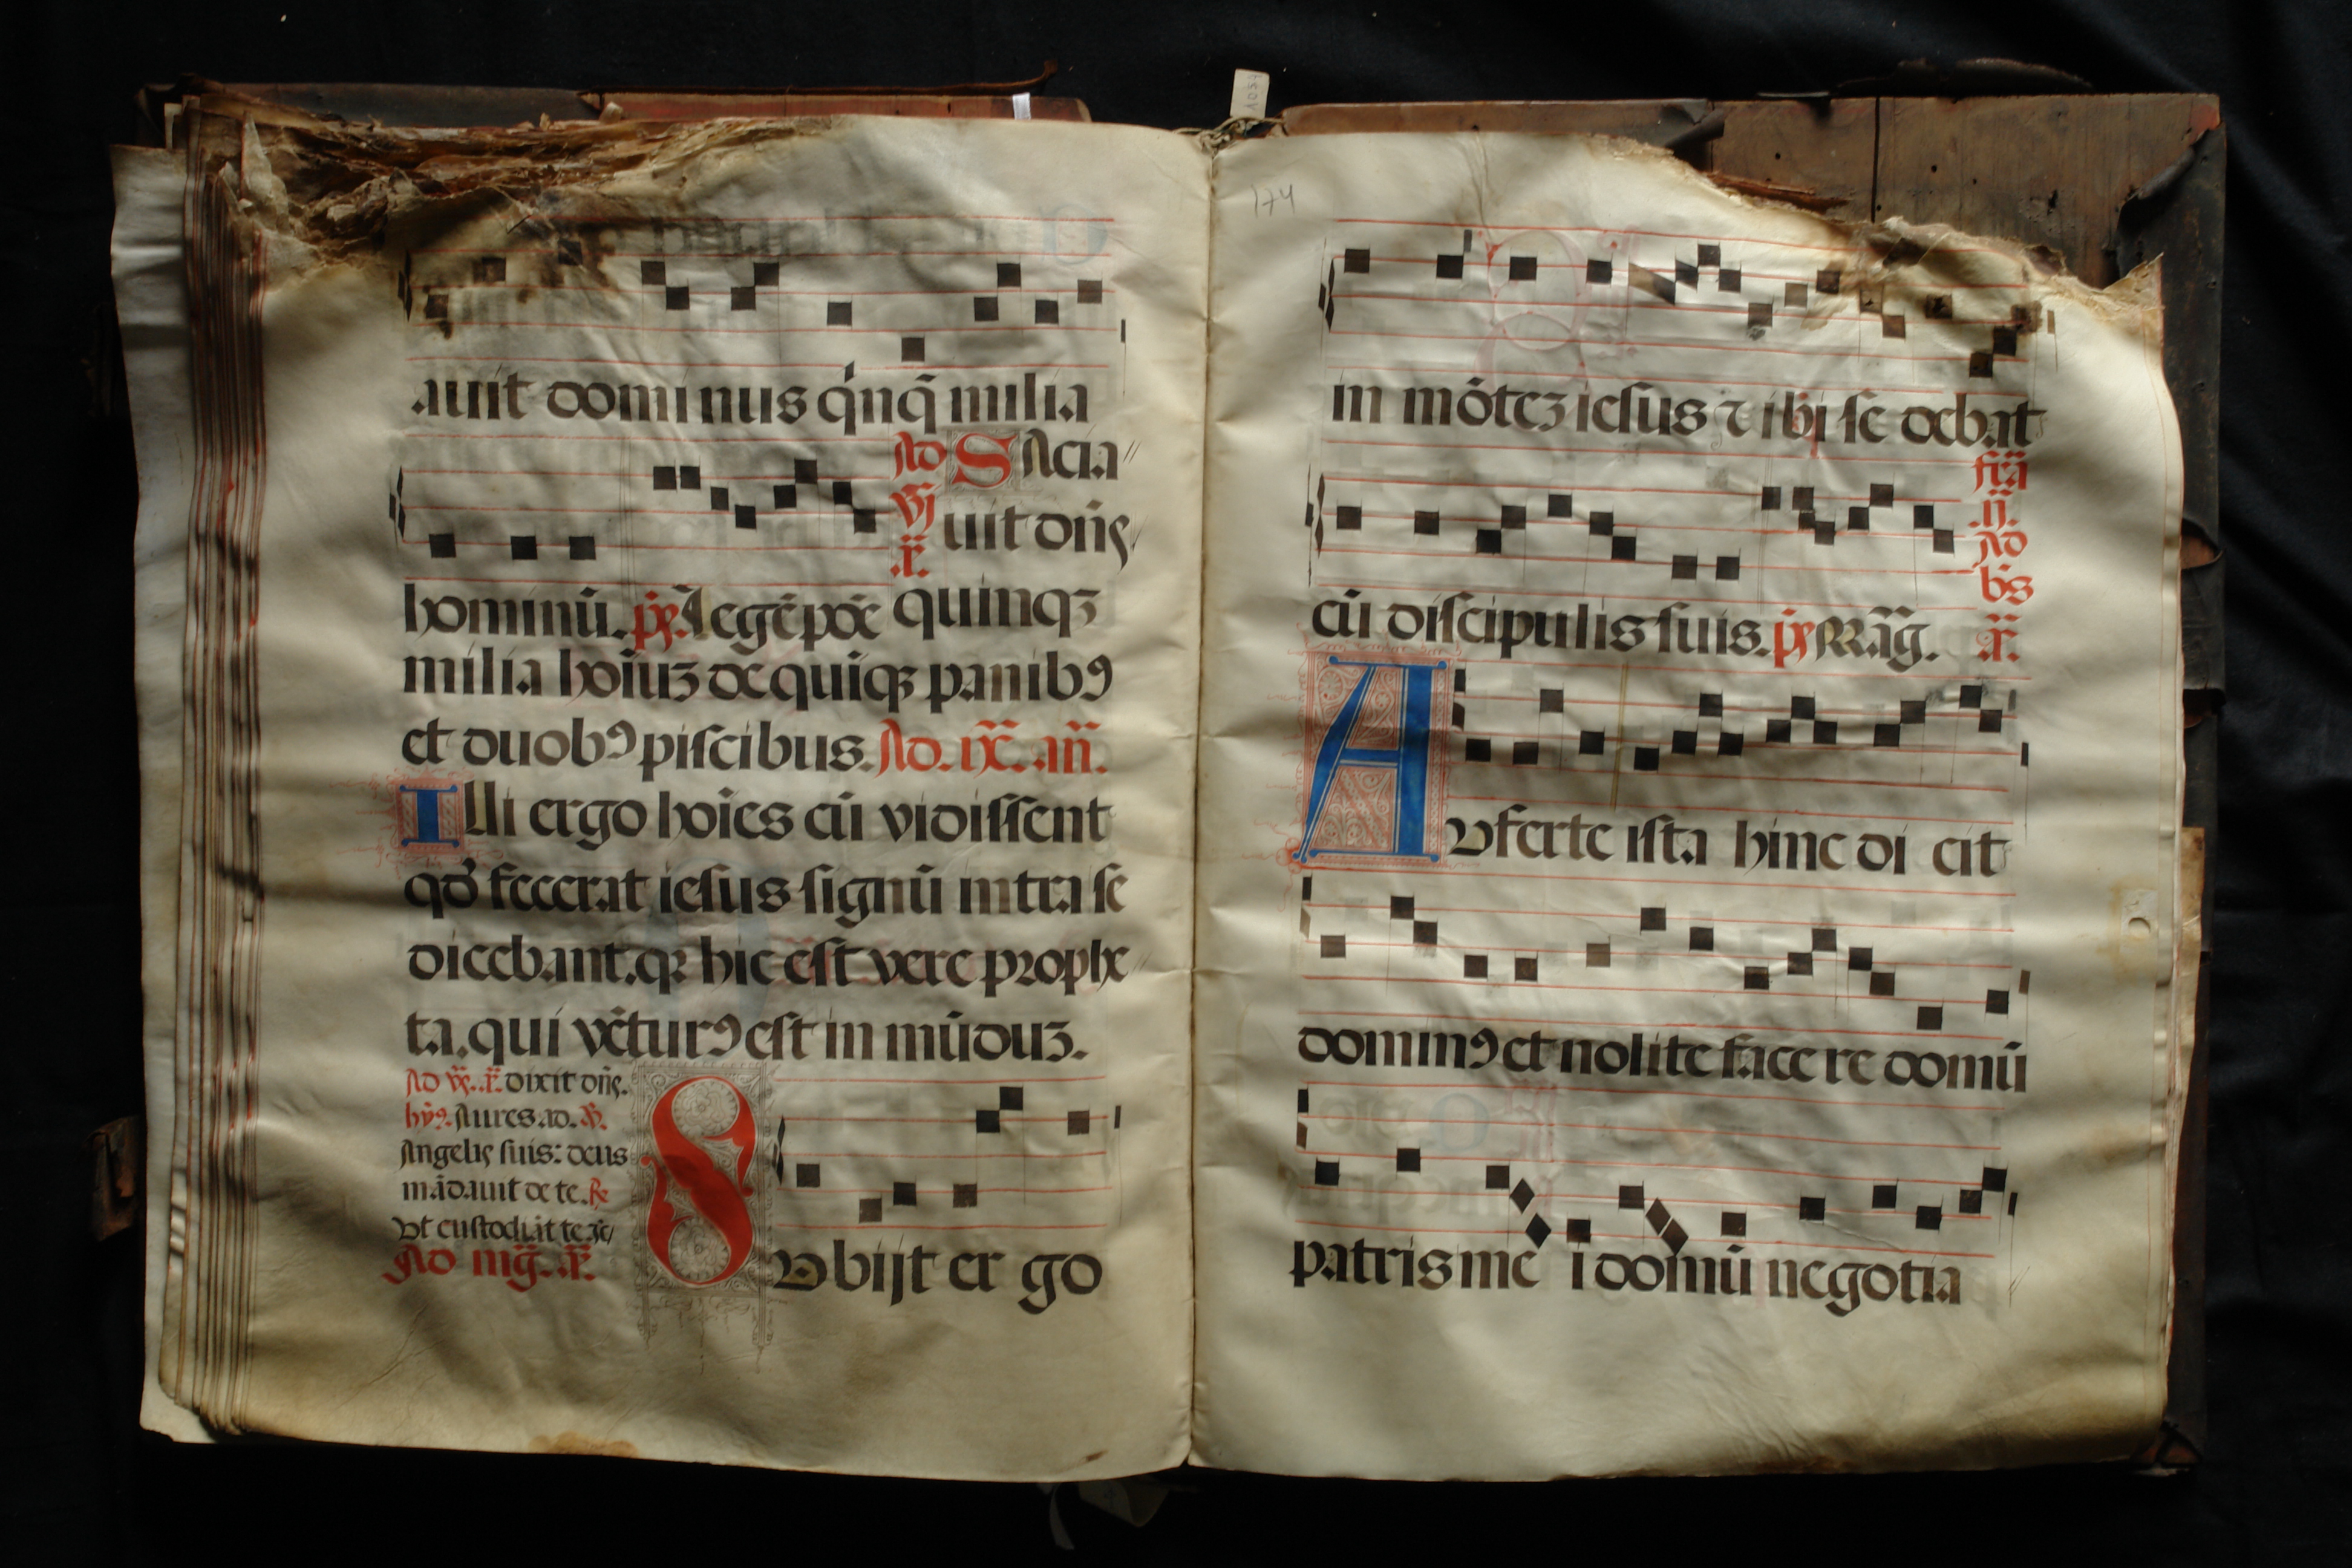 auit domi nus q̇nq̄ milia
Ad SAcia
uit dn̄s
hominū. legē poē quinqꝫ
milia hoīuꝫ de quiqꝫ panibꝰ
et duobꝰ piscibus. Ad. ix. an̄.
Illi ergo hoīes cū vidissent
qd̓ fecerat iesus signū intra se
dicebant. qꝛ hic est vere prophe
ta. qui vētur̄ꝰ est in mūduꝫ.
Ad dixit dn̄s.
Aures ad.
Angelis suis: deus
mādauit de te.
Vt custodiāt te
Ad mḡ.
SVbijt er go
174
in mōteꝫ iesus ⁊ ibi se debat
cū discipulis suis.
fr̄a
ij.
Ad
bn̄s
AVferte ista hinc di cit
dominꝰ et nolite face re domū
patris me i domū negotia